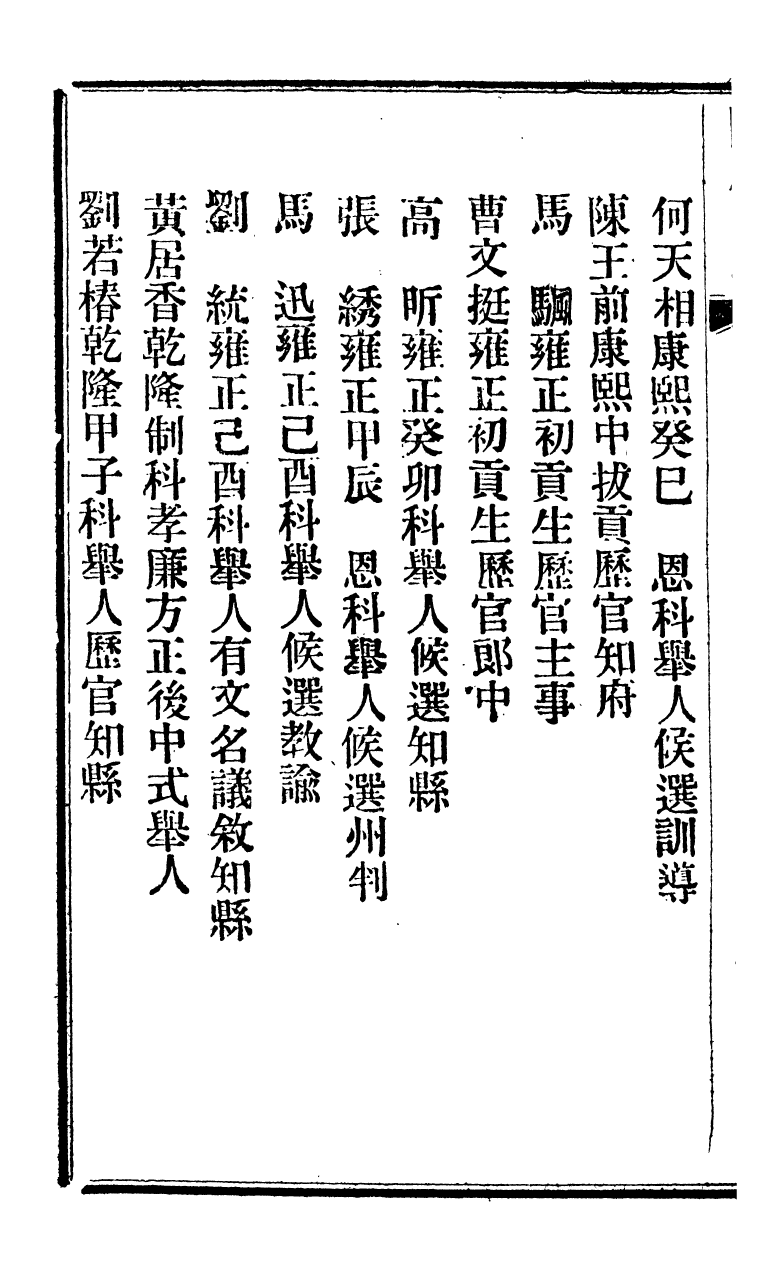 何天相康熙癸巳　恩科舉人候選訓導
陳王前康熙中拔貢歷官知府
馬　颿雍正初貢生歷官主事
曹文挺雍正初貢生歷官郎中
高　昕雍正癸卯科舉人候選知縣
張　綉雍正甲辰　恩科舉人候選州判
馬　迅雍正己酉科舉人候選教諭
劉　統雍正己酉科舉人有文名議敘知縣
黃居香乾隆制科孝廉方正後中式舉人
劉若椿乾隆甲子科舉人歷官知縣